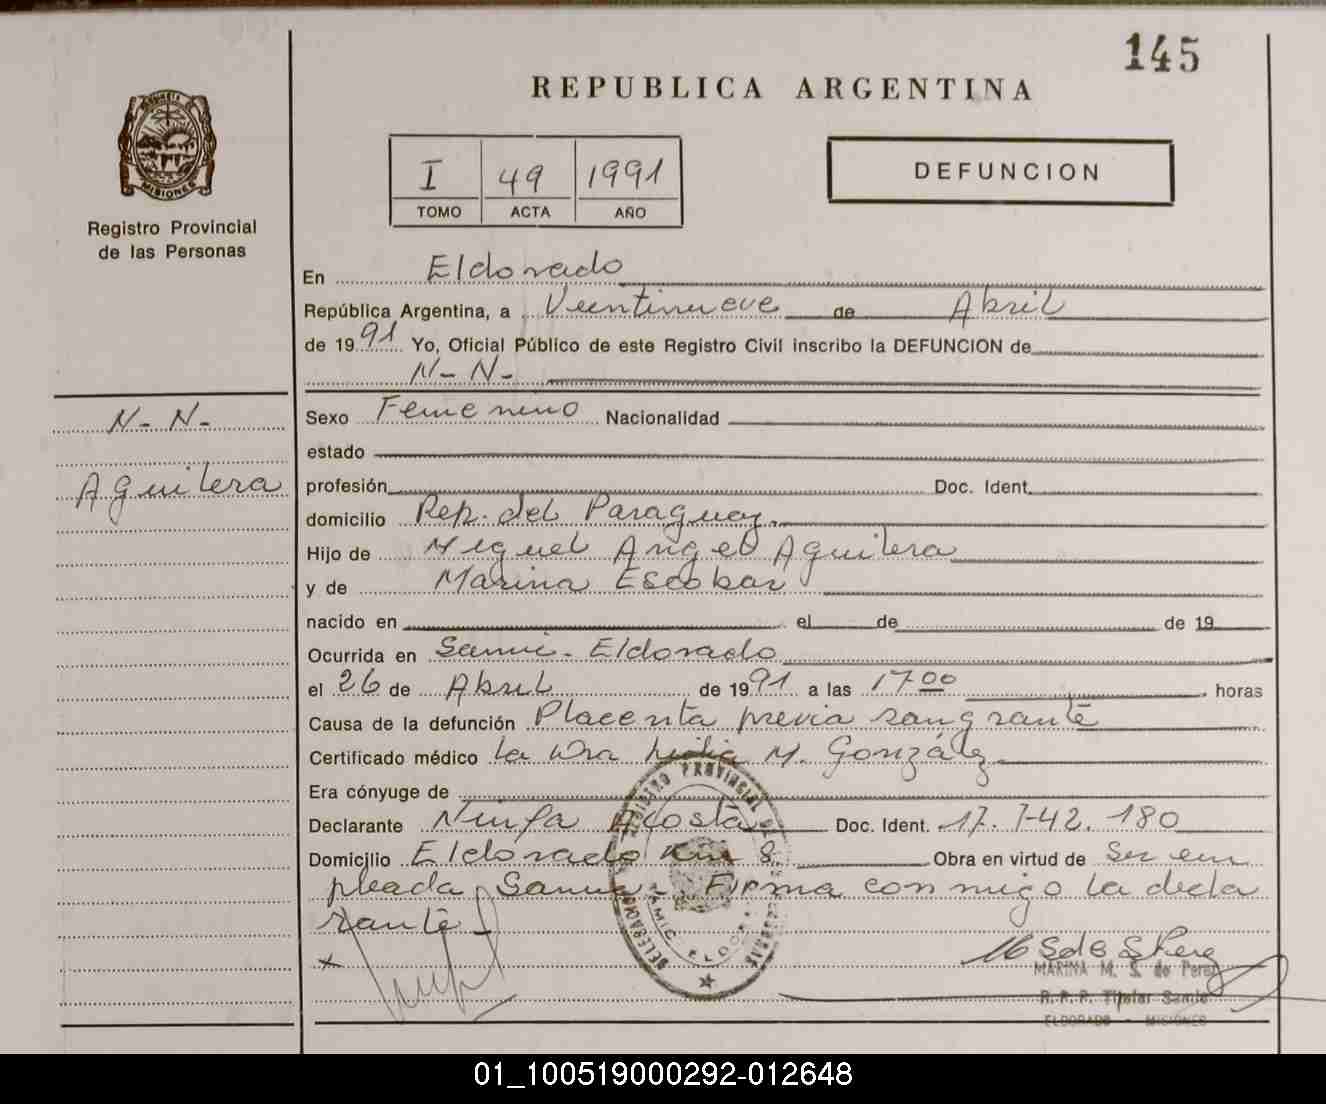 145
REPUBLICA ARGENTINA
MISIONES
Registro Provincial
de las Personas
I 49 1991
TOMO ACTA AÑO
DEFUNCION
En Eldorado
República Argentina, a Veintinueve de Abril
de 1991 Yo, Oficial Público de este Registro Civil inscribo la DEFUNCION de
N- N-
N- N-
Aguilera
Sexo Femenino Nacionalidad
estado
profesión Doc. Ident.
domicilio Rep. del Paraguay.
Hijo de Miguel Angel Aguilera
y de Marina Escobar
nacido en el de de 19
Ocurrida en Samic- Eldorado
el 26 de Abril de 1991 a las 17 00 horas
Causa de la defunción Placenta previa sangrante
Certificado médico La Dra M. González
Era cónyuge de
Declarante Ninfa Acosta Doc. Ident. 17. 742. 180
Domicilio Eldorado Km 8 Obra en virtud de Ser em
pleada Samic- Firma conmigo la decla
rante-
REGISTRO PROVINCIAL DE
DELEGACION
MARINA M. S. de Perez
R. P. P. Titular Samic
ELDORADO - MISIONES
01_100519000292-012648